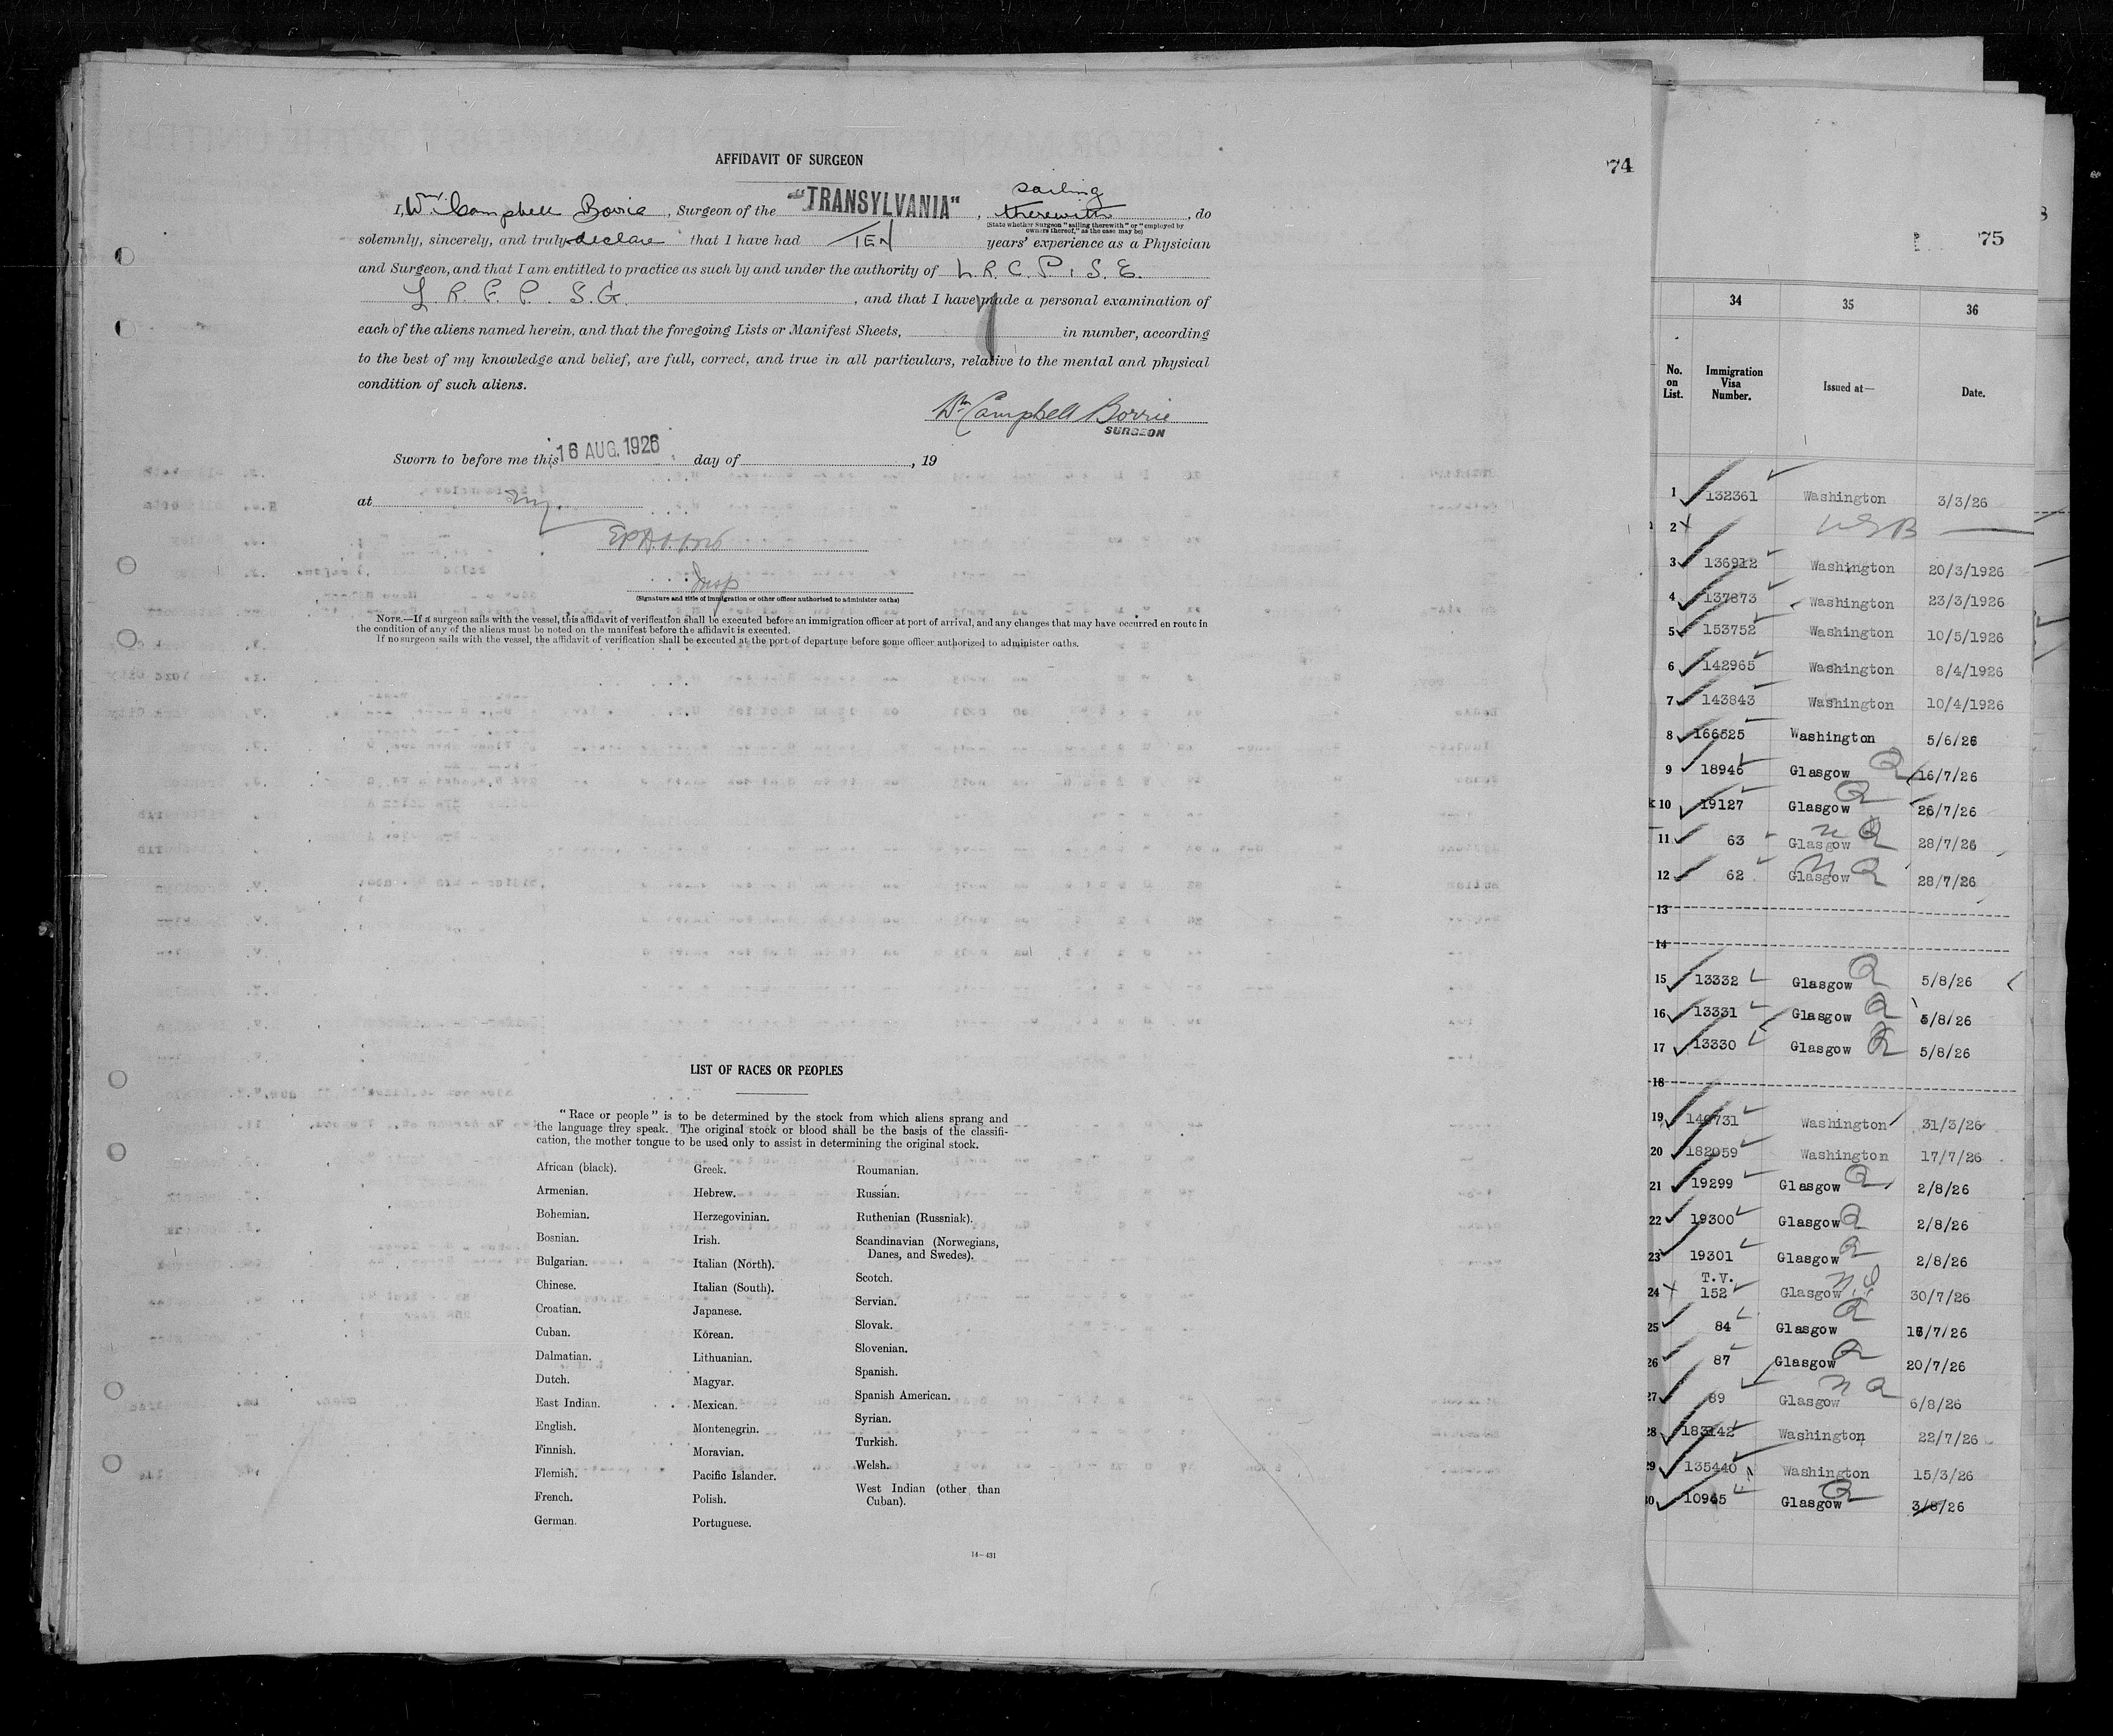 AFFIDAVIT OF SURGEON
74
I, Wm. Campbell Borrie, Surgeon of the "TRANSYLVANIA", sailing therewith, do
(State whether Surgeon "sailing therewith" or "employed by
owners thereof," as the case may be)
solemnly, sincerely, and truly declare that I have had TEN years' experience as a Physician
and Surgeon, and that I am entitled to practice as such by and under the authority of L. R. C. P. S. E.
L. R. F. P. S. G., and that I have made a personal examination of
each of the aliens named herein, and that the foregoing Lists or Manifest Sheets, 1 in number, according
to the best of my knowledge and belief, are full, correct, and true in all particulars, relative to the mental and physical
condition of such aliens.
Wm Campbell Borrie
SURGEON
Sworn to before me this 16 AUG. 1926 day of , 19
at NY.
Insp
(Signature and title of immigration or other officer authorized to administer oaths)
NOTE.—If a surgeon sails with the vessel, this affidavit of verification shall be executed before an immigration officer at port of arrival, and any changes that may have occurred en route in
the condition of any of the aliens must be noted on the manifest before the affidavit is executed.
If no surgeon sails with the vessel, the affidavit of verification shall be executed at the port of departure before some officer authorized to administer oaths.
LIST OF RACES OR PEOPLES
"Race or people" is to be determined by the stock from which aliens sprang and
the language they speak. The original stock or blood shall be the basis of the classifi-
cation, the mother tongue to be used only to assist in determining the original stock.
African (black).
Armenian.
Bohemian.
Bosnian.
Bulgarian.
Chinese.
Croatian.
Cuban.
Dalmatian.
Dutch.
East Indian.
English.
Finnish.
Flemish.
French.
German.
Greek.
Hebrew.
Herzegovinian.
Irish.
Italian (North).
Italian (South).
Japanese.
Korean.
Lithuanian.
Magyar.
Mexican.
Montenegrin.
Moravian.
Pacific Islander.
Polish.
Portuguese.
Roumanian.
Russian.
Ruthenian (Russniak).
Scandinavian (Norwegians,
Danes, and Swedes).
Scotch.
Servian.
Slovak.
Slovenian.
Spanish.
Spanish American.
Syrian.
Turkish.
Welsh.
West Indian (other than
Cuban).
14—431
75
34 35 36
No. on List. Immigration Visa Number. Issued at— Date.
1 132361 Washington 3/3/26
2 USB
3 136912 Washington 20/3/1926
4 137873 Washington 23/3/1926
5 153752 Washington 10/5/1926
6 142965 Washington 8/4/1926
7 143843 Washington 10/4/1926
8 166525 Washington 5/6/26
9 18946 Glasgow Q 16/7/26
10 19127 Glasgow Q 26/7/26
11 63 Glasgow N Q 28/7/26
12 62 Glasgow N Q 28/7/26
13
14
15 13332 Glasgow Q 5/8/26
16 13331 Glasgow Q 5/8/26
17 13330 Glasgow Q 5/8/26
18
19 149731 Washington 31/3/26
20 182059 Washington 17/7/26
21 19299 Glasgow Q 2/8/26
22 19300 Glasgow Q 2/8/26
23 19301 Glasgow Q 2/8/26
24 T.V. 152 Glasgow 30/7/26
25 84 Glasgow Q /7/26
26 87 Glasgow Q 20/7/26
27 89 Glasgow N Q 6/8/26
28 183142 Washington 22/7/26
29 135440 Washington 15/3/26
30 10945 Glasgow Q 3/8/26